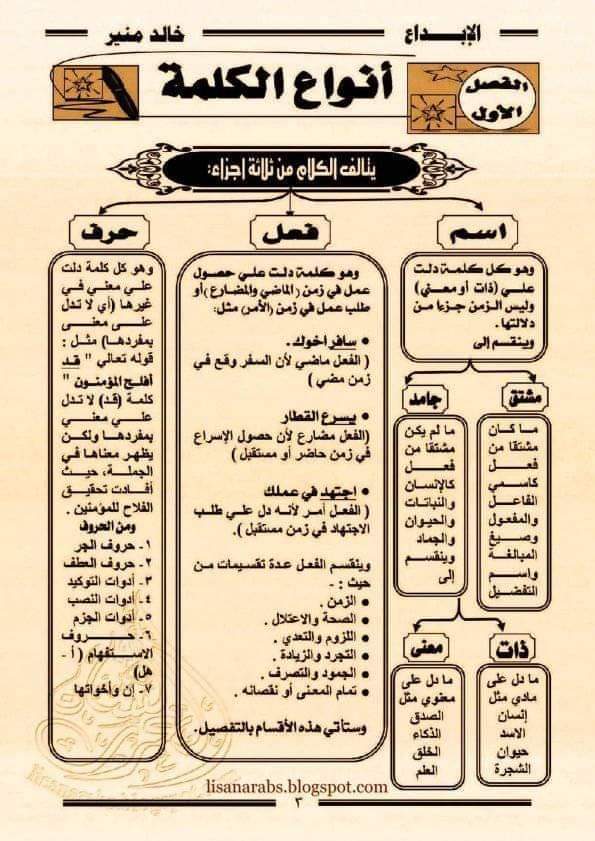 الإبـداع
خالد منير
الفصل
الأول
أنواع الكلمة
يتالف الكلام من ثلاثة اجزاء:
اسم
وهو كل كلمة دلت
علي (ذات أو معني)
وليس الزمن جزءا من
دلالتها.
وينقسم إلى
مشتق
ما كان
مشتقا من
فعل
كاسمي
الفاعل
والمفعول
وصيغ
المبالغة
واسم
التفضيل
جامد
ما لم يكن
مشتقا من
فعل
كالإنسان
والنباتات
والحيوان
والجماد
وينقسم
إلى
ذات
ما دل على
مادي مثل
إنسان
الاسد
حيوان
الشجرة
معنى
ما دل على
معنوي مثل
الصدق
الذكاء
الخلق
العلم
فعل
وهو كلمة دلت علي حصول
عمل في زمن (الماضي والمضارع)أو
طلب عمل في زمن (الأمر) مثل:
● سافر أخوك.
( الفعل ماضي لأن السفر وقع في
زمن مضي )
● يسرع القطار
(الفعل مضارع لأن حصول الإسراع
في زمن حاضر أو مستقبل )
● اجتهد في عملك
( الفعل أمر لأنه دل علي طلب
الاجتهاد في زمن مستقبل ).
وينقسم الفعل عدة تقسيمات من
حيث : -
● الزمن .
● الصحة والاعتلال .
● اللزوم والتعدي .
● التجرد والزيادة .
● الجمود والتصرف .
● تمام المعنى أو نقصانه .
وستأتي هذه الأقسام بالتفصيل.
حرف
وهو كل كلمة دلت
علي معني في
غيرها (أي لا تدل
على معنى
بمفردها) مثل :
قوله تعالي " قد
أفلح المؤمنون "
كلمة (قد) لا تدل
علي معني
بمفردها ولكن
يظهر معناها في
الجملة، حيث
أفادت تحقيق
الفلاح للمؤمنين .
ومن الحروف
١- حروف الجر
٢- حروف العطف
٣- أدوات التوكيد
٤- أدوات النصب
٥- أدوات الجزم
٦- حـــروف
الاستفهام ( أ -
هل)
٧- إن وأخواتها
lisanarabs.blogspot.com
٣